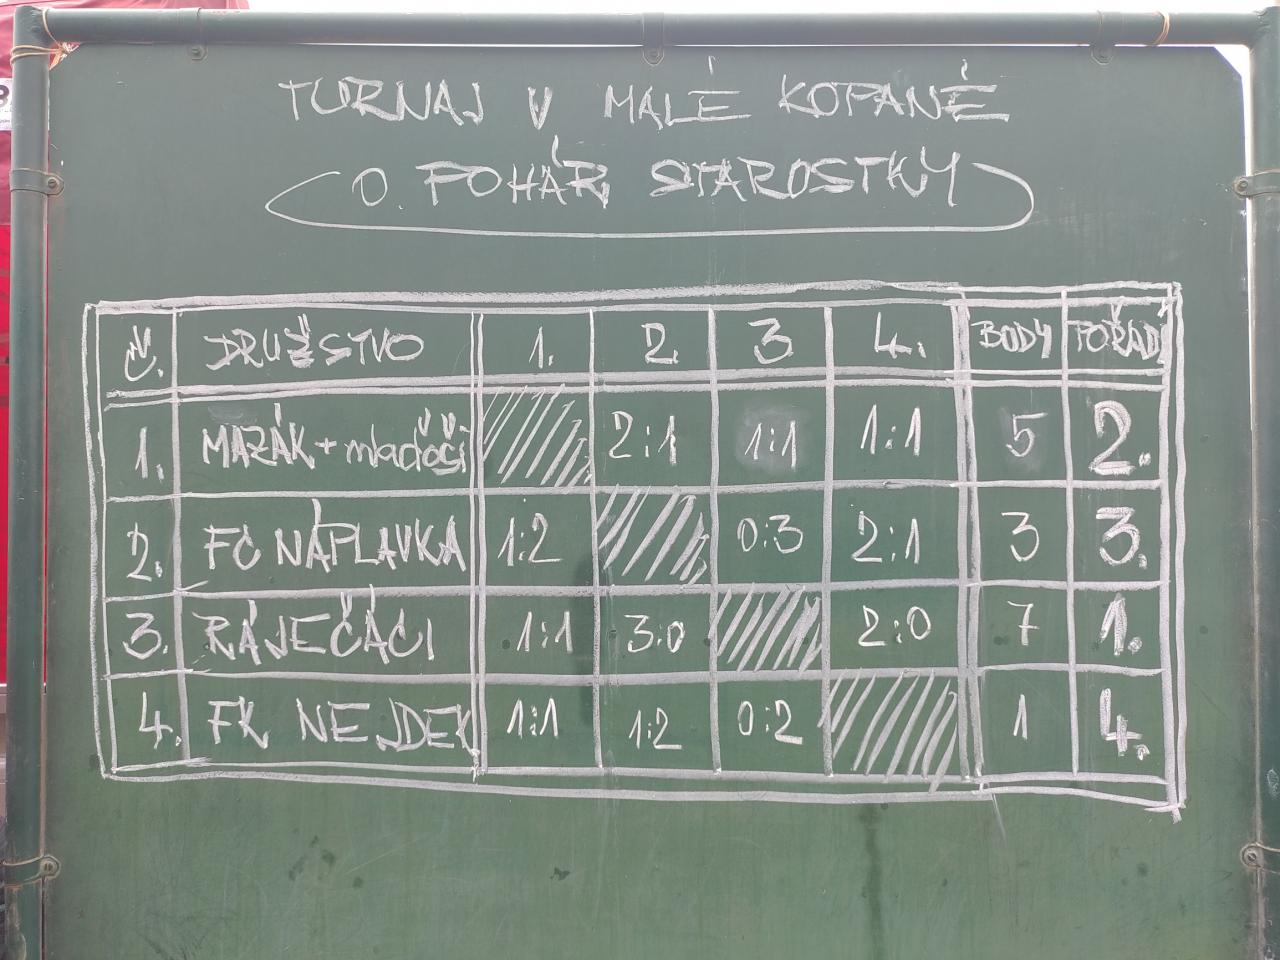 TURNAJ V MALÉ KOPANÉ
O. POHÁR STAROSTKY
Č. DRUŽSTVO 1. 2. 3. 4. BODY POŘADÍ
1. MAZÁK + mladočši 2:1 1:1 1:1 5 2.
2. FC NÁPLAVKA 1:2 0:3 2:1 3 3.
3. RÁJEČÁCI 1:1 3:0 2:0 7 1.
4. FK NEJDEK 1:1 1:2 0:2 1 4.